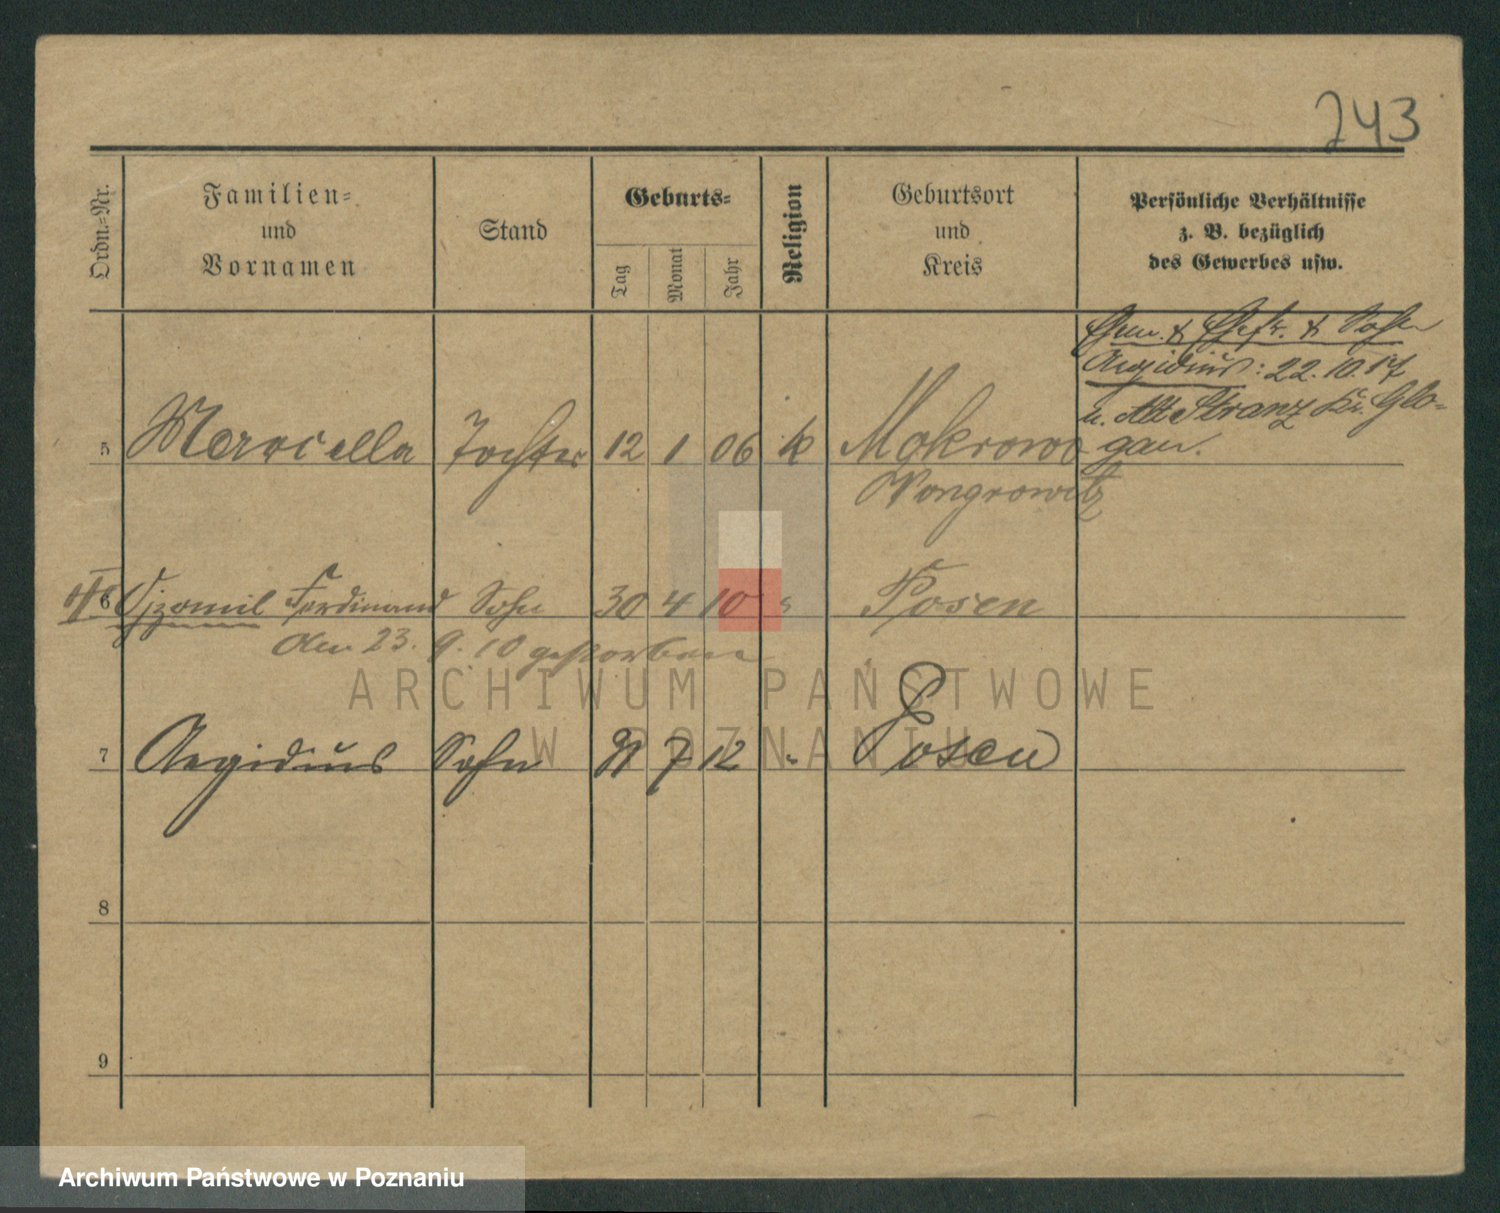 243
Ordn.-Nr.
Familien-
und
Vornamen
Stand
Geburts-
Tag
Monat
Jahr
Religion
Geburtsort
und
Kreis
Persönliche Verhältnisse
z. B. bezüglich
des Gewerbes usw.
Ehem. & Ehefr. & Sohn
Aegidius: 22.10.17
n. Alt Stranz Kr. Glo-
gau.
5 Maricella Tochter 12 1 06 k Mokrowo
Wongrowitz
6 Ferdinand Sohn 30 4 10 " Posen
den 23. 9. 10 gestorben
7 Aegidius Sohn 7 12 " Posen
8
9
ARCHIWUM PAŃSTWOWE
W POZNANIU
Archiwum Państwowe w Poznaniu